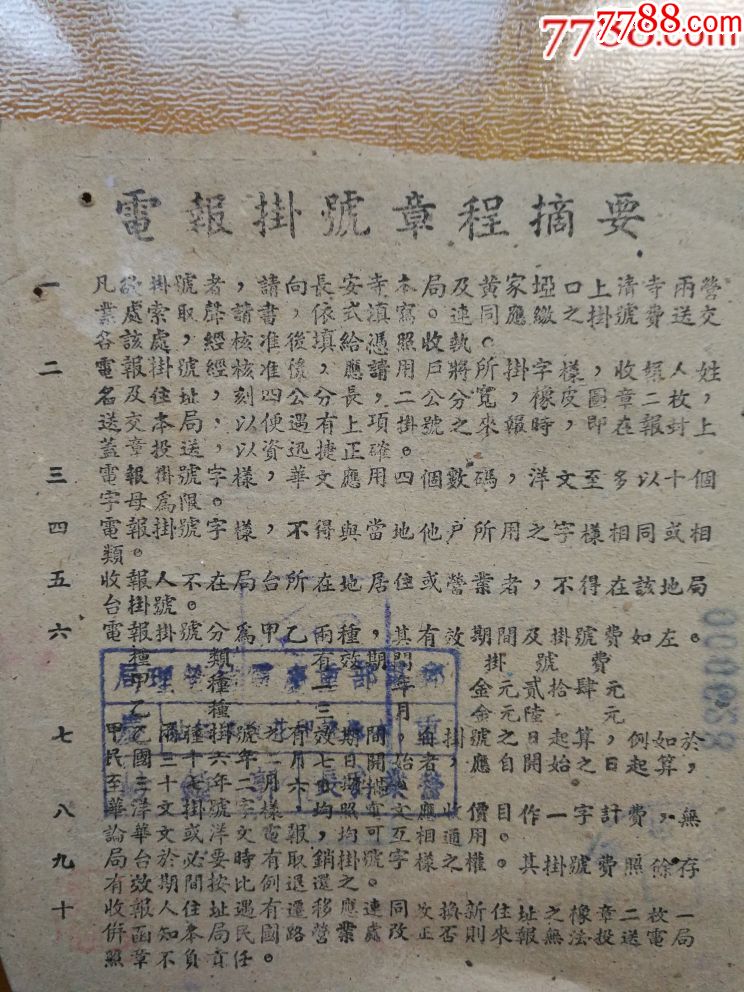 7788.com
7788.com
電報掛號章程摘要
一 凡欲掛號者，請向長安寺本局及黃家埡口上清寺兩營
業處索取聲請書，依式填寫。連同應繳之掛號費送交
各該處，經核准後填給憑照收執。
二 電報掛號經核准後，應請用戶將所掛字樣，收報人姓
名及住址，刻四公分長，二公分寬，橡皮圖章二枚，
送交本局，以便遇有上項掛號之來報時，即在報封上
蓋章投送，以資迅捷正確。
三 電報掛號字樣，華文應用四個數碼，洋文至多以十個
字母為限。
四 電報掛號字樣，不得與當地他戶所用之字樣相同或相
類。
五 收報人不在局台所在地居住或營業者，不得在該地局
台掛號。
六 電報掛號分為甲乙兩種，其有效期間及掛號費如左。
種類 有效期間 掛號費
甲種 一年 金元貳拾肆元
乙種 三月 金元陸元
七 甲乙兩種掛號有效期間，自掛號之日起算，例如於
民國三十六年
至
八 華洋文掛號字樣
應收價目作一字計費，無
論華文或洋文電報均可互相通用。
九 局台於必要時有取銷掛號字樣之權。其掛號費照餘存
有效期間按比例退還之。
十 收報人住址遇有遷移應速同改換新住址之橡章二枚一
併函知本局民國路營業處改正否則來報無法投送電局
照章不負責任
000638